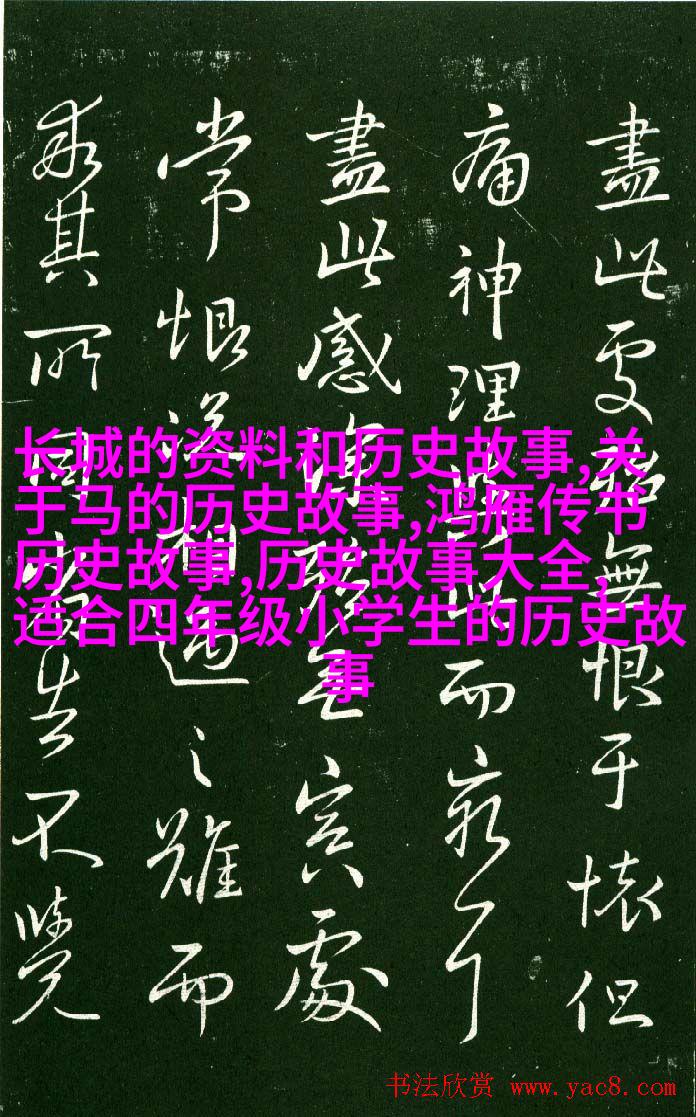 盡此無恨于懷但
痛神理此而
盡此感冥處
常恨相遇之難而
其所同不覺
长城的资料和历史故事,关
于马的历史故事,鸿雁传书
历史故事,历史故事大全,
适合四年级小学生的历史故
事
书法欣赏 www.yac8.com